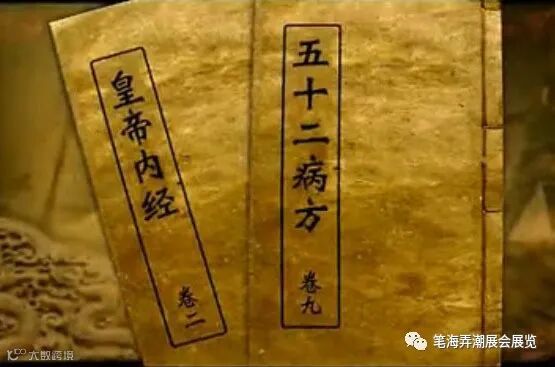 五十二病方
卷九
皇帝内经
卷二
笔海弄潮展会展览
大数跨境